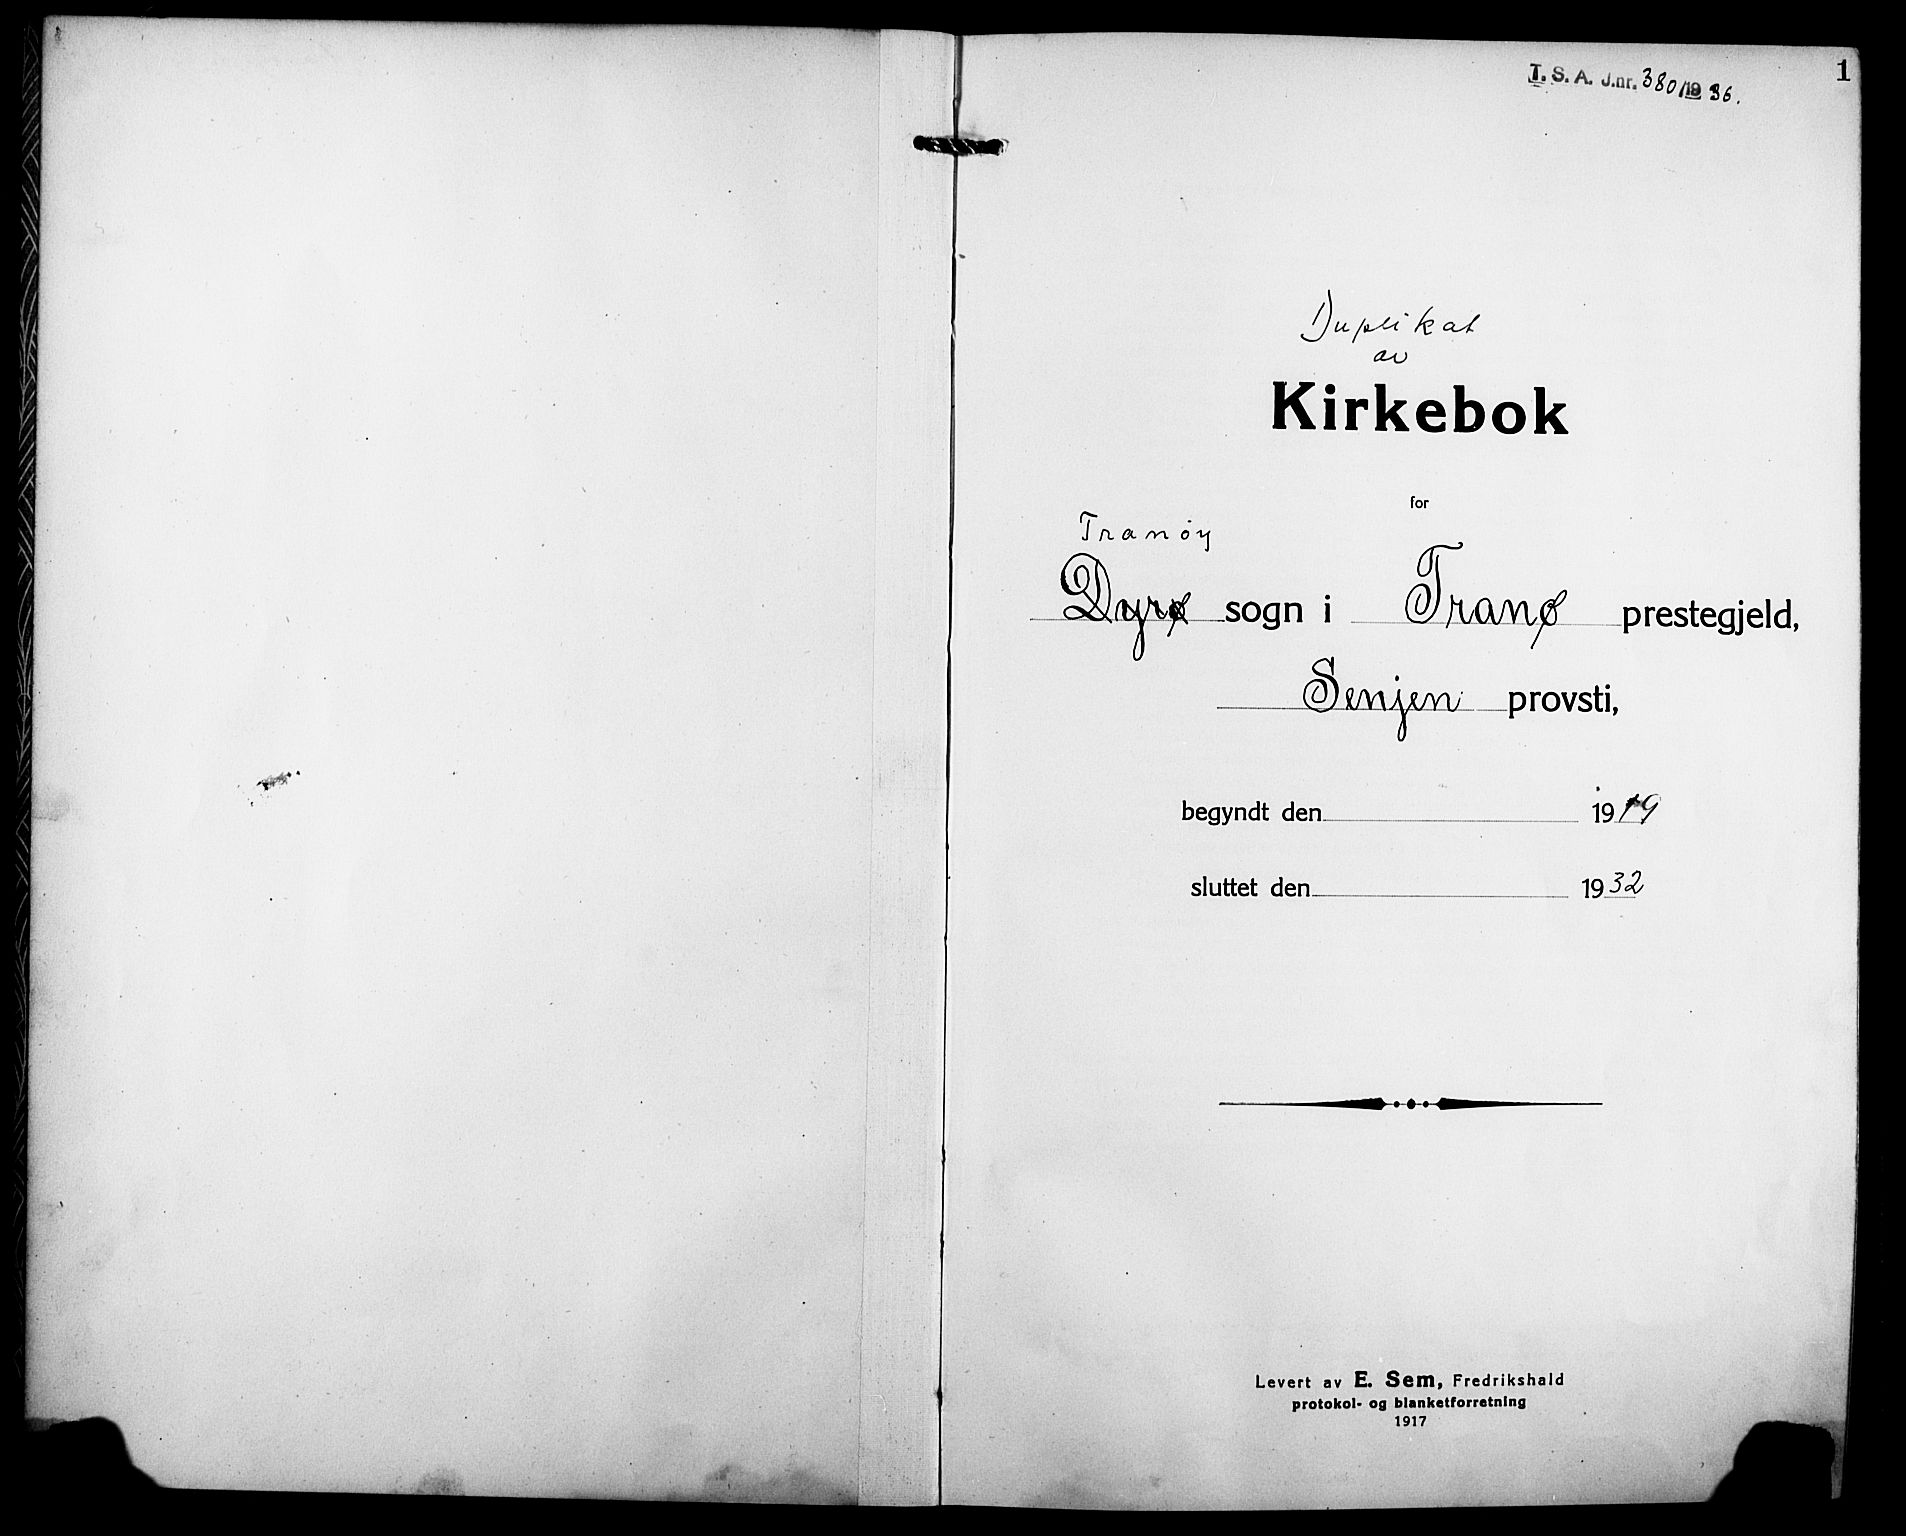 1
T. S. A. J.nr. 380/1936.
Duplikat
av
Kirkebok
for
Tranöy
Dyrø sogn i Tranø prestegjeld,
Senjen provsti,
begyndt den 1919
sluttet den 1932
Levert av E. Sem, Fredrikshald
protokol- og blanketforretning
1917